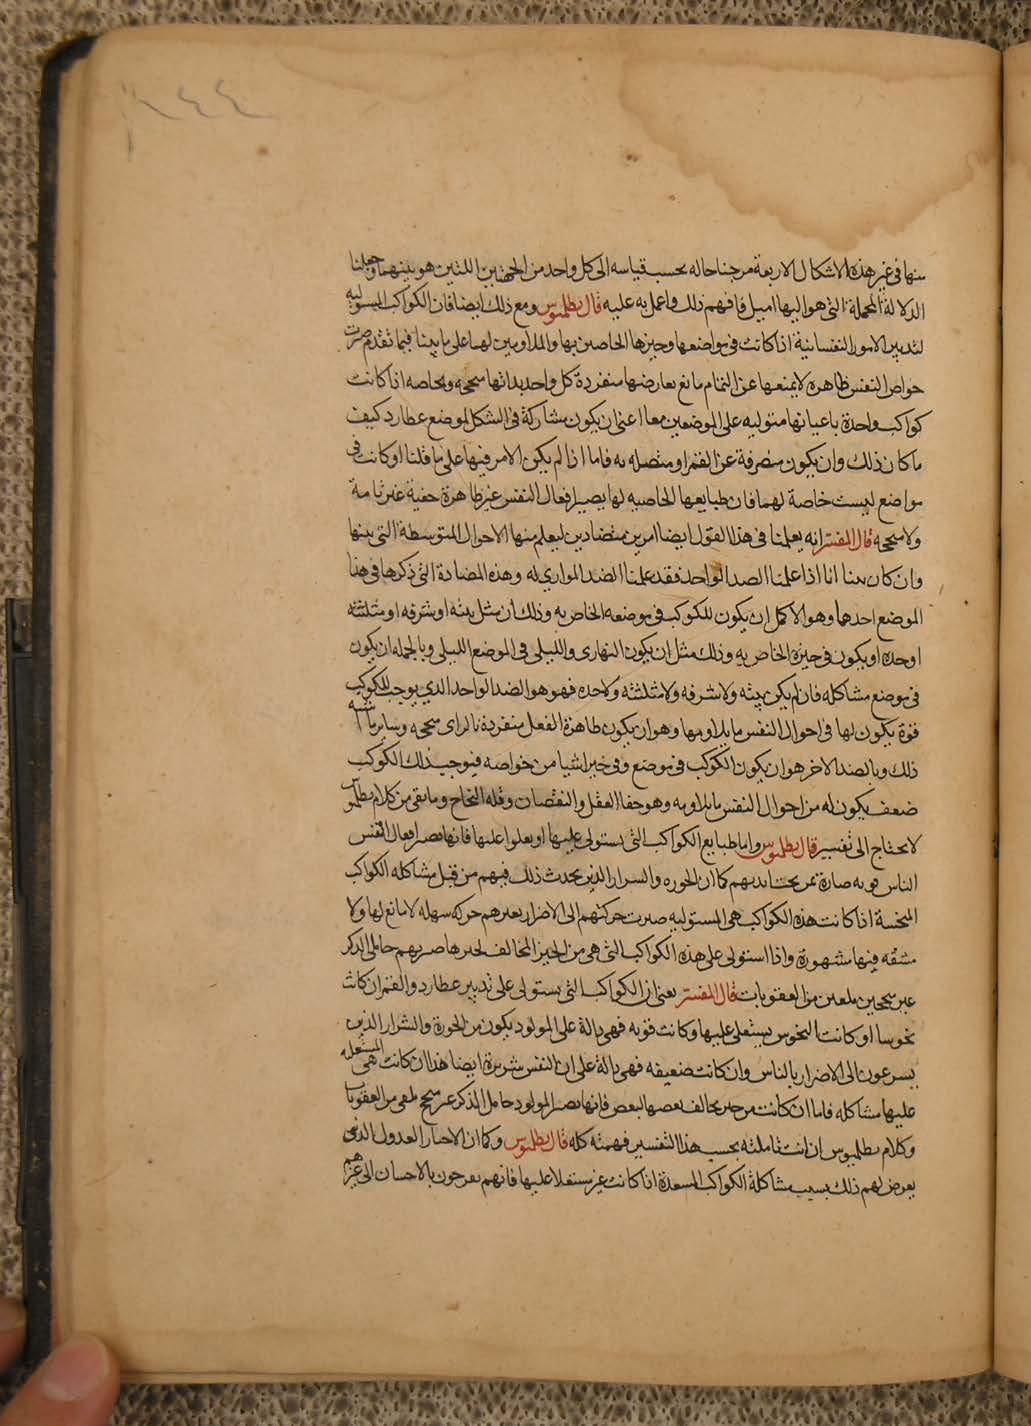 ١٤٤
منها في غير هذه الاشكال الاربعة مزجنا حاله بحسب قياسه الى كل واحد من الجهتين اللتين هو بينهما وجعلنا
الدلالة المجملة التي هو اليها اميل فافهم ذلك واعمل به عليه قال بطلميوس ومع ذلك ايضا فان الكواكب المستوليه
لتدبير الامور النفسانية اذا كانت في مواضعها وحيزها الخاصين بها والملاومين لهما على ما بينا فيما تقدم صيرت
خواص النفس ظاهرة لا يمنعها عن التمام مانع يعارضها منفردة كل واحد بذاتها منجحه وبخاصه اذا كانت
كواكب واحدة باعيانها متوليه على الموضعين معا اعني ان يكون مشاركة في الشكل لموضع عطارد كيف
ما كان ذلك وان يكون منصرفة عن القمر او متصله به فاما اذا لم يكن الامر فيها على ما قلنا او كانت في
مواضع ليست خاصة لهما فان طبايعها الخاصيه لها يصير افعال النفس غير ظاهرة خفية غير تامة
ولا منجحه قال المفسر انه يعلمنا في هذا القول ايضا امرين متضادين ليعلم منها الاحوال المتوسطة التي بينها
وان كان بينا انا اذا علمنا الضد الواحد فقد علمنا الضد الموازي له وهذه المضادة التي ذكرها في هذا
الموضع احدهما وهو الاكمل ان يكون للكوكب في موضعه الخاص به وذلك ان مثل بيته او شرفه او مثلثته
او حده او يكون في حيزه الخاص به وذلك مثل ان يكون النهاري والليلي في الموضع الليلي وبالجمله ان يكون
في موضع مشاكله فان لم يكن بيته ولا شرفه ولا مثلثته ولا حده فهو هو الضد الواحد الذي يوجب للكوكب
قوة يكون لها في احوال النفس ما يلاومها وهو ان يكون ظاهرة الفعل منفردة بالراي منجحه وساير ما اشبه
ذلك وبالضد الاخر هو ان يكون الكوكب في موضع وفي حيز اشيا من خواصه فيوجب ذلك الكوكب
ضعف يكون له من احوال النفس ما يلاومه وهو خفا الفعل والنقصان وقله النجاح وما بقى من كلام بطلميوس
لا يحتاج الى تفسير قال بطلميوس واما طبايع الكواكب التي يستولي عليها او يعلوا عليها فانها تصير افعال النفس
الناس قويه ضارة بمن تحت ايديهم كما ان الخوره والسرار الذين يحدث ذلك فيهم من قبل مشاكله الكواكب
المنحسة اذا كانت هذه الكواكب هي المستوليه صيرت حركتهم الى الاضرار بغيرهم حركه سهله لا مانع لها ولا
مشقه فيها مشهورة واذا استولى على هذه الكواكب التي هي من الحيز المخالف لحيزها صيرهم حاملي الذكر
غير منجحين من العقوبات قال المفسر يعني ان الكواكب التي يستولي على تدبير عطارد والقمر ان كانت
نحوسا او كانت النحوس يستعلي عليها وكانت قويه فهي دالة على المولود يكون من الخورة والشرار الذين
يسرعون الى الاضرار بالناس وان كانت ضعيفه فهي دالة على ان النفس شريرة ايضا هذا ان كانت هي المستعليه
عليها مشاكله فاما ان كانت من حيز مخالف بعضها لبعض فانها تصير المولود حامل الذكر غير منجح من العقوبات
وكلام بطلميوس ان انت تاملته بحسب هذا التفسير فهمته كله قال بطلميوس وكما ان الاخيار العدول الذين
يعرض لهم ذلك بسبب مشاكلة الكواكب المسعدة اذا كانت غير مستعلا عليها فانهم يفرحون بالاحسان الى غيرهم